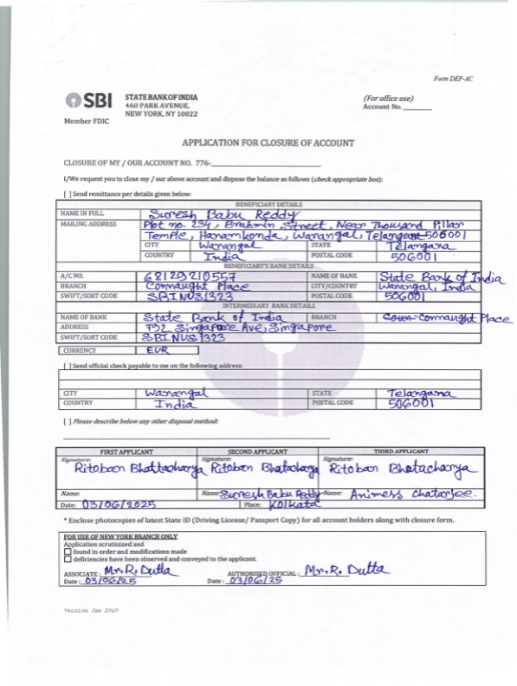 Form DEP-AC
SBI
Member FDIC
STATE BANK OF INDIA
460 PARK AVENUE,
NEW YORK, NY 10022
(For office use)
Account No. ________
APPLICATION FOR CLOSURE OF ACCOUNT
CLOSURE OF MY / OUR ACCOUNT NO. 776-____________________
I/We request you to close my / our above account and dispose the balance as follows (check appropriate box):
[ ] Send remittance per details given below:
BENEFICIARY DETAILS
NAME IN FULL Suresh Babu Reddy
MAILING ADDRESS Plot no. 234, Brahmin Street, Near Thousand Pillar
Temple, Hanamkonda, Warangal, Telangana 506001
CITY Warangal STATE Telangana
COUNTRY India POSTAL CODE 506001
BENEFICIARY'S BANK DETAILS
A/C NO. 62129210557 NAME OF BANK State Bank of India
BRANCH Connaught Place CITY/COUNTRY Warangal, India
SWIFT/SORT CODE SBINUS1323 POSTAL CODE 506001
INTERMEDIARY BANK DETAILS
NAME OF BANK State Bank of India BRANCH Connaught Place
ADDRESS 792 Singapore Ave, Singapore
SWIFT/SORT CODE SBINUS1323
CURRENCY EUR
[ ] Send official check payable to me on the following address:
CITY Warangal STATE Telangana
COUNTRY India POSTAL CODE 506001
[ ] Please describe below any other disposal method:
FIRST APPLICANT SECOND APPLICANT THIRD APPLICANT
Signature: Signature: Signature:
Ritoban Bhattacharya Ritoban Bhatacharya Ritoban Bhatacharya
Name: Name: Suresh Babu Reddy Name: Animess Chatarjee.
Date: 03/06/2025 Place: Kolkata
* Enclose photocopies of latest State ID (Driving License/ Passport Copy) for all account holders along with closure form.
FOR USE OF NEW YORK BRANCH ONLY
Application scrutinized and
found in order and modifications made
deficiencies have been observed and conveyed to the applicant.
ASSOCIATE: Mr. R. Dutta AUTHORISED OFFICIAL: Mr. R. Dutta
Date: 03/06/25 Date: 03/06/25
Version Jan 2020